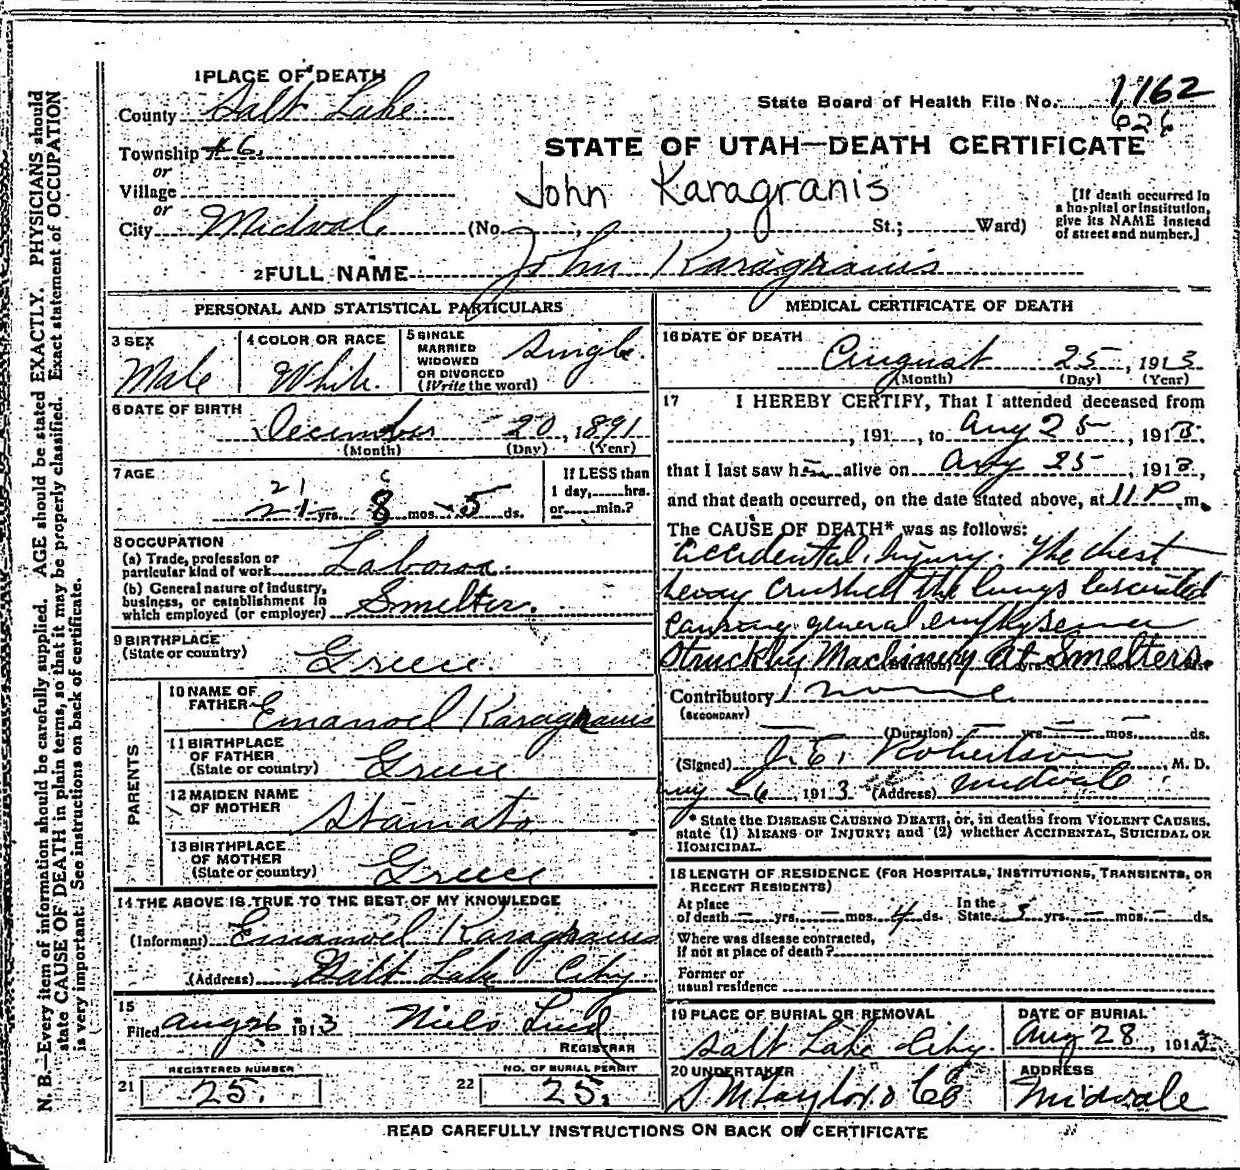 1 PLACE OF DEATH
County Salt Lake
State Board of Health File No. 1162
626
Township #6.
or
Village
or
City Midvale (No. , , St.; Ward)
STATE OF UTAH—DEATH CERTIFICATE
John Karagranis
[If death occurred in
a hospital or institution,
give its NAME instead
of street and number.]
2 FULL NAME John Karagranis
PERSONAL AND STATISTICAL PARTICULARS
3 SEX
Male
4 COLOR OR RACE
White.
5 SINGLE
MARRIED
WIDOWED
OR DIVORCED
(Write the word)
Single.
6 DATE OF BIRTH
December 20, 1891
(Month) (Day) (Year)
7 AGE
21
21 yrs. 8 mos. 5 ds.
If LESS than
1 day, hrs.
or min.?
8 OCCUPATION
(a) Trade, profession or
particular kind of work Laborer.
(b) General nature of industry,
business, or establishment in
which employed (or employer) Smelter.
9 BIRTHPLACE
(State or country) Greece.
PARENTS
10 NAME OF
FATHER Emanoel Karagranis
11 BIRTHPLACE
OF FATHER
(State or country) Greece
12 MAIDEN NAME
OF MOTHER Stamato
13 BIRTHPLACE
OF MOTHER
(State or country) Greece
14 THE ABOVE IS TRUE TO THE BEST OF MY KNOWLEDGE
(Informant) Emanoel Karagranis
(Address) Salt Lake City.
15
Filed Aug 26 1913 Niels Lind
REGISTRAR
REGISTERED NUMBER
21 25.
NO. OF BURIAL PERMIT
22 25.
MEDICAL CERTIFICATE OF DEATH
16 DATE OF DEATH
August 25, 1913
(Month) (Day) (Year)
17 I HEREBY CERTIFY, That I attended deceased from
, 191 , to Aug 25, 1913.
that I last saw him alive on Aug 25, 1913,
and that death occurred, on the date stated above, at 11 P. m.
The CAUSE OF DEATH* was as follows:
Accidental Injury. The chest
being crushed the lungs lacerated
causing general emphysema
Struck by Machinery at Smelters.
Contributory none
(SECONDARY)
(Duration) yrs. mos. ds.
(Signed) J. E. Robertson, M. D.
Aug 26, 1913 (Address) Midvale
* State the DISEASE CAUSING DEATH, or, in deaths from VIOLENT CAUSES,
state (1) MEANS OF INJURY; and (2) whether ACCIDENTAL, SUICIDAL OR
HOMICIDAL.
18 LENGTH OF RESIDENCE (FOR HOSPITALS, INSTITUTIONS, TRANSIENTS, OR
RECENT RESIDENTS)
At place
of death — yrs. — mos. 4 ds.
In the
State 3 yrs. — mos. — ds.
Where was disease contracted,
if not at place of death?
Former or
usual residence
19 PLACE OF BURIAL OR REMOVAL
Salt Lake City.
DATE OF BURIAL
Aug 28, 1913
20 UNDERTAKER
S M Taylor & Co
ADDRESS
Midvale
READ CAREFULLY INSTRUCTIONS ON BACK OF CERTIFICATE
N. B.—Every item of information should be carefully supplied. AGE should be stated EXACTLY. PHYSICIANS should
state CAUSE OF DEATH in plain terms, so that it may be properly classified. Exact statement of OCCUPATION
is very important. See instructions on back of certificate.